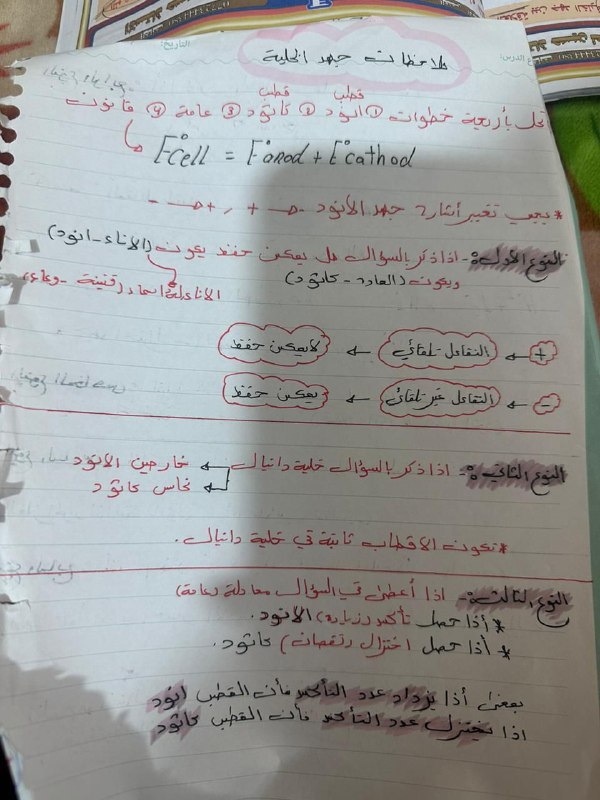 ملاحظات جهد الخلية
تحل بأربعة خطوات ① قطب انود ② قطب كاثود ③ عامة ④ قانون
E°cell = E°anod + E°cathod
* يجب تغيير أشارة جهد الأنود - → + , + → -
النوع الأول :- اذا ذكر بالسؤال هل يمكن حفظ يكون (الأناء - انود)
ويكون (المادة - كاثود)
الاناء له اسماء (قنينة - وعاء)
+ ← التفاعل تلقائي ← لا يمكن حفظ
- ← التفاعل غير تلقائي ← يمكن حفظ
النوع الثاني :- اذا ذكر بالسؤال خلية دانيال ← خارصين الانود
← نحاس كاثود
* تكون الاقطاب ثابتة في خلية دانيال .
النوع الثالث :- اذا أعطى في السؤال معادلة (عامة)
* أذا حصل تأكسد (زيادة) الأنود .
* أذا حصل اختزال (نقصان) كاثود .
بمعنى أذا يزداد عدد التأكسد فأن القطب انود
اذا يختزل عدد التأكسد فأن القطب كاثود